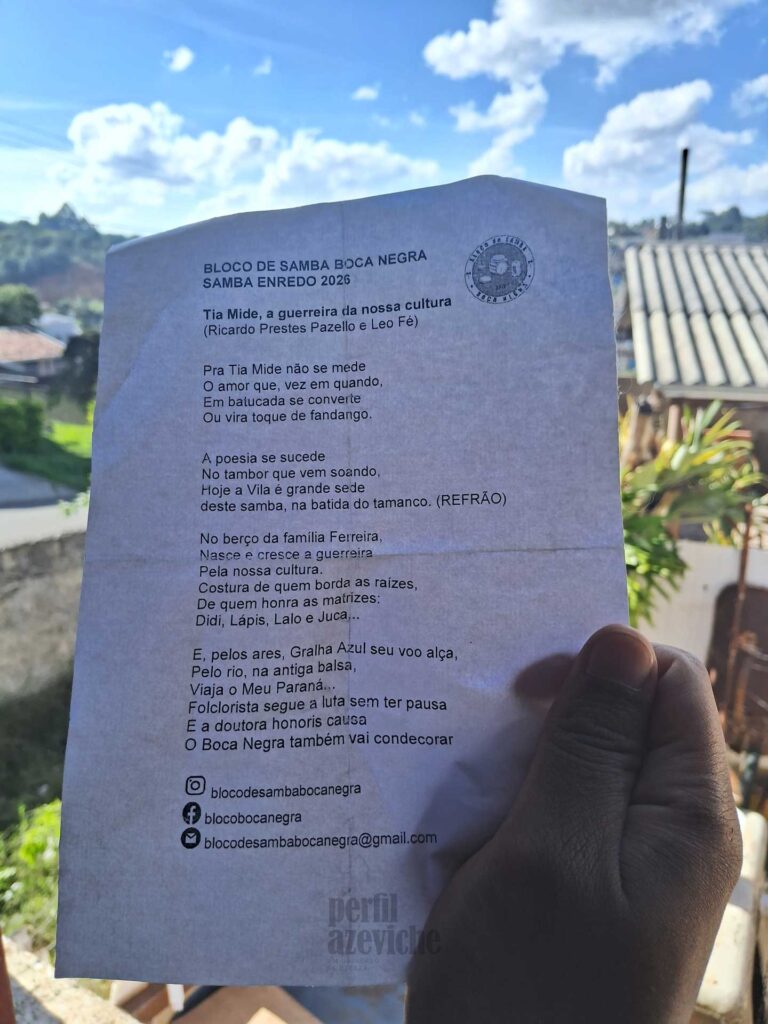 BLOCO DE SAMBA BOCA NEGRA
SAMBA ENREDO 2026
BLOCO DE SAMBA
BOCA NEGRA
Tia Mide, a guerreira da nossa cultura
(Ricardo Prestes Pazello e Leo Fé)
Pra Tia Mide não se mede
O amor que, vez em quando,
Em batucada se converte
Ou vira toque de fandango.
A poesia se sucede
No tambor que vem soando,
Hoje a Vila é grande sede
deste samba, na batida do tamanco. (REFRÃO)
No berço da família Ferreira,
Nasce e cresce a guerreira
Pela nossa cultura.
Costura de quem borda as raízes,
De quem honra as matrizes:
Didi, Lápis, Lalo e Juca...
E, pelos ares, Gralha Azul seu voo alça,
Pelo rio, na antiga balsa,
Viaja o Meu Paraná...
Folclorista segue a luta sem ter pausa
E a doutora honoris causa
O Boca Negra também vai condecorar
blocodesambabocanegra
blocobocanegra
blocodesambabocanegra@gmail.com
perfil
azeviche